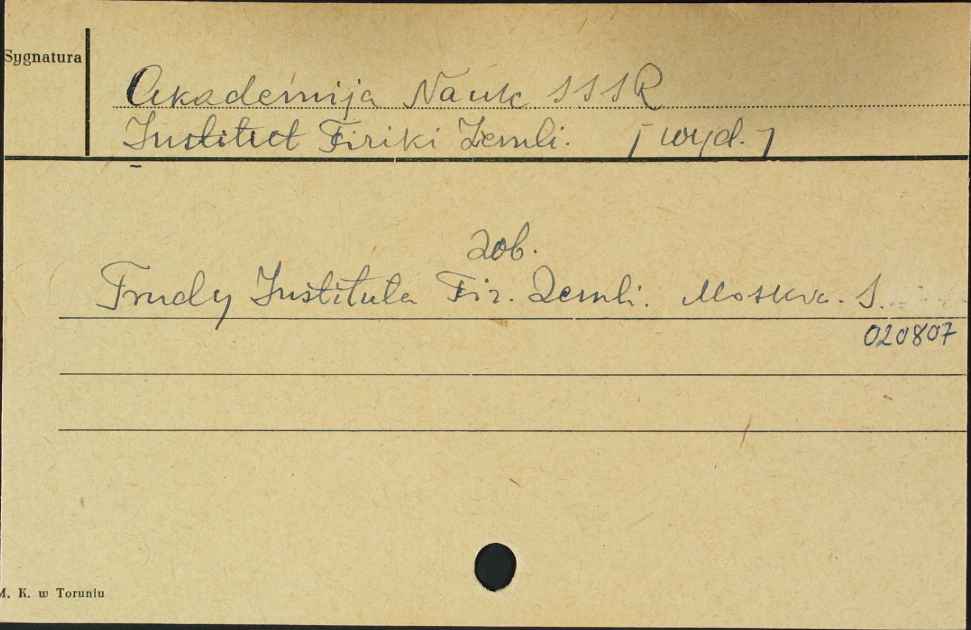 Sygnatura
Akademija Nauk SSSR
Institut Fiziki Zemli. [wyd.]
zob.
Trudy Instituta Fiz. Zemli. Moskva. S.
020807
M. K. w Toruniu